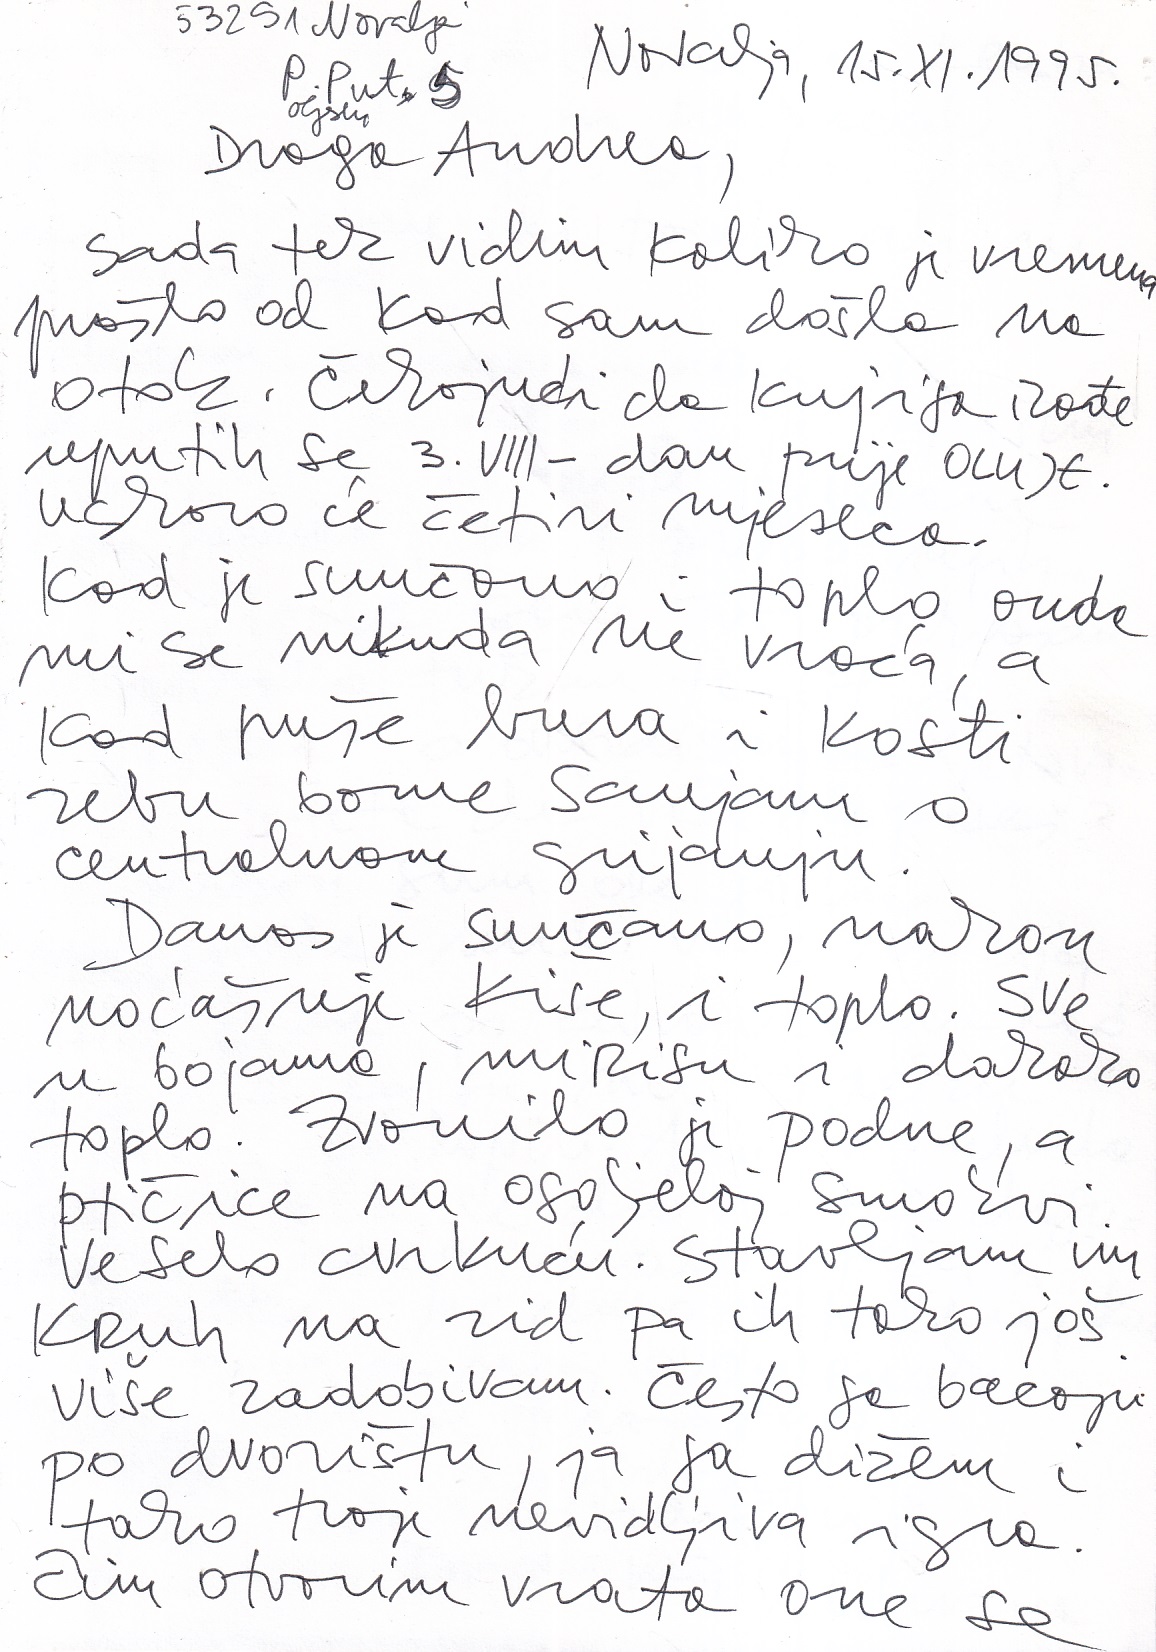 53291 Novalja
P. Put. 5
Novalja, 15.XI.1995.
Draga Andrea,
sada tek vidim koliko je vremena
prošlo od kad sam došla na
otok. Čekajući da knjiga izađe
uputih se 3.VIII – dan prije OLUJE.
Uskoro će četiri mjeseca.
Kad je sunčano i toplo onda
mi se nikuda ne vraća, a
kad puše bura i kosti
zebu bome sanjam o
centralnom grijanju.
Danas je sunčano, nakon
noćašnje kiše, i toplo. Sve
u bojama, mirisu i dakako
toplo. Zvonilo je podne, a
ptičice na ogoljeloj smokvi
veselo cvrkuću. Stavljam im
kruh na zid pa ih tako još
više zadobivam. Često ga bacaju
po dvorištu, ja ga dižem i
tako traje nevidljiva igra.
Čim otvorim vrata one se